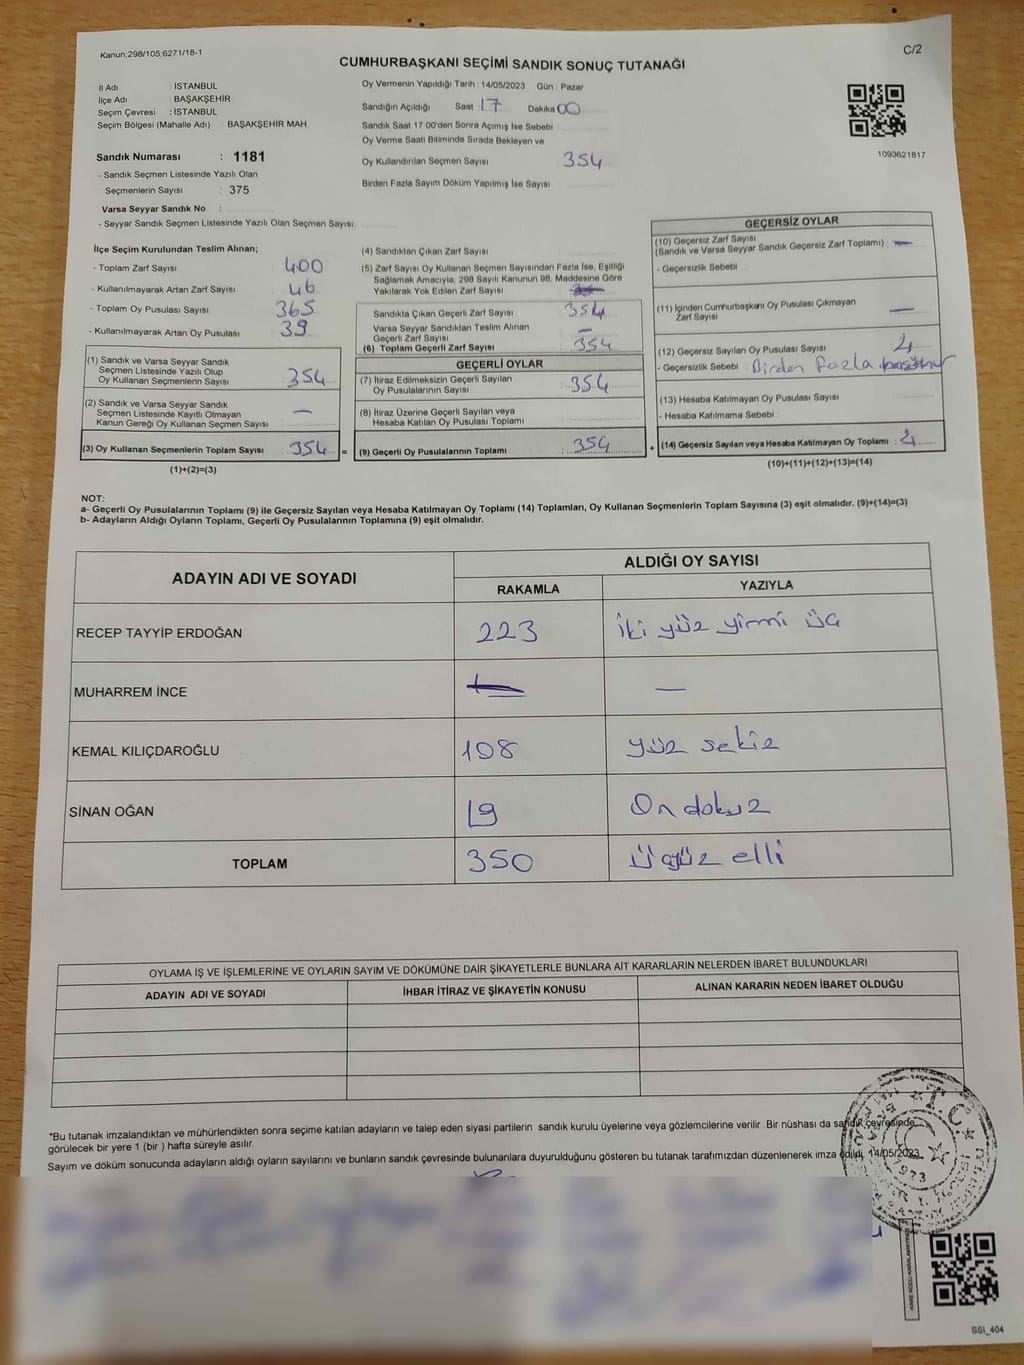 Kanun;298/105,6271/18-1
C/2
CUMHURBAŞKANI SEÇİMİ SANDIK SONUÇ TUTANAĞI
İl Adı : İSTANBUL
İlçe Adı : BAŞAKŞEHİR
Seçim Çevresi : İSTANBUL
Seçim Bölgesi (Mahalle Adı) : BAŞAKŞEHİR MAH.
Sandık Numarası : 1181
- Sandık Seçmen Listesinde Yazılı Olan
Seçmenlerin Sayısı : 375
Varsa Seyyar Sandık No :
- Seyyar Sandık Seçmen Listesinde Yazılı Olan Seçmen Sayısı:
Oy Vermenin Yapıldığı Tarih : 14/05/2023 Gün : Pazar
Sandığın Açıldığı Saat 17 Dakika 00
Sandık Saat 17:00'den Sonra Açımış İse Sebebi
Oy Verme Saati Bitiminde Sırada Bekleyen ve
Oy Kullandırılan Seçmen Sayısı 354
Birden Fazla Sayım Döküm Yapılmış İse Sayısı
1093621817
İlçe Seçim Kurulundan Teslim Alınan;
- Toplam Zarf Sayısı : 400
- Kullanılmayarak Artan Zarf Sayısı : 46
- Toplam Oy Pusulası Sayısı : 365
- Kullanılmayarak Artan Oy Pusulası : 39
(1) Sandık ve Varsa Seyyar Sandık
Seçmen Listesinde Yazılı Olup
Oy Kullanan Seçmenlerin Sayısı : 354
(2) Sandık ve Varsa Seyyar Sandık
Seçmen Listesinde Kayıtlı Olmayan
Kanun Gereği Oy Kullanan Seçmen Sayısı : —
(3) Oy Kullanan Seçmenlerin Toplam Sayısı : 354 =
(1)+(2)=(3)
(4) Sandıktan Çıkan Zarf Sayısı :
(5) Zarf Sayısı Oy Kullanan Seçmen Sayısından Fazla İse, Eşitliği
Sağlamak Amacıyla, 298 Sayılı Kanunun 98. Maddesine Göre
Yakılarak Yok Edilen Zarf Sayısı :
Sandıkla Çıkan Geçerli Zarf Sayısı : 354
Varsa Seyyar Sandıktan Teslim Alınan
Geçerli Zarf Sayısı : —
(6) Toplam Geçerli Zarf Sayısı : 354
GEÇERLİ OYLAR
(7) İtiraz Edilmeksizin Geçerli Sayılan
Oy Pusulalarının Sayısı : 354
(8) İtiraz Üzerine Geçerli Sayılan veya
Hesaba Katılan Oy Pusulası Toplamı :
(9) Geçerli Oy Pusulalarının Toplamı : 354 +
GEÇERSİZ OYLAR
(10) Geçersiz Zarf Sayısı
(Sandık ve Varsa Seyyar Sandık Geçersiz Zarf Toplamı) : —
- Geçersizlik Sebebi :
(11) İçinden Cumhurbaşkanı Oy Pusulası Çıkmayan
Zarf Sayısı : —
(12) Geçersiz Sayılan Oy Pusulası Sayısı : 4
- Geçersizlik Sebebi : Birden fazla
(13) Hesaba Katılmayan Oy Pusulası Sayısı :
- Hesaba Katılmama Sebebi :
(14) Geçersiz Sayılan veya Hesaba Katılmayan Oy Toplamı : 4
(10)+(11)+(12)+(13)=(14)
NOT:
a- Geçerli Oy Pusulalarının Toplamı (9) ile Geçersiz Sayılan veya Hesaba Katılmayan Oy Toplamı (14) Toplamları, Oy Kullanan Seçmenlerin Toplam Sayısına (3) eşit olmalıdır. (9)+(14)=(3)
b- Adayların Aldığı Oyların Toplamı, Geçerli Oy Pusulalarının Toplamına (9) eşit olmalıdır.
ADAYIN ADI VE SOYADI
ALDIĞI OY SAYISI
RAKAMLA YAZIYLA
RECEP TAYYİP ERDOĞAN 223 iki yüz yirmi üç
MUHARREM İNCE —
KEMAL KILIÇDAROĞLU 108 yüz sekiz
SİNAN OĞAN 19 On dokuz
TOPLAM 350 Üçyüz elli
OYLAMA İŞ VE İŞLEMLERİNE VE OYLARIN SAYIM VE DÖKÜMÜNE DAİR ŞİKAYETLERLE BUNLARA AİT KARARLARIN NELERDEN İBARET BULUNDUKLARI
ADAYIN ADI VE SOYADI İHBAR İTİRAZ VE ŞİKAYETİN KONUSU ALINAN KARARIN NEDEN İBARET OLDUĞU
"Bu tutanak imzalandıktan ve mühürlendikten sonra seçime katılan adayların ve talep eden siyasi partilerin sandık kurulu üyelerine veya gözlemcilerine verilir .Bir nüshası da sandık çevresinde
görülecek bir yere 1 (bir ) hafta süreyle asılır.
Sayım ve döküm sonucunda adayların aldığı oyların sayılarını ve bunların sandık çevresinde bulunanlara duyurulduğunu gösteren bu tutanak tarafımızdan düzenlenerek imza edildi. 14/05/2023
T.C.
1923
SSI_404